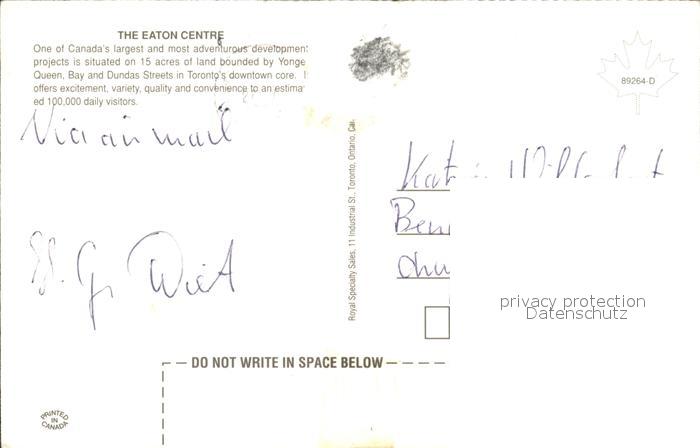 THE EATON CENTRE
One of Canada's largest and most adventurous development
projects is situated on 15 acres of land bounded by Yonge
Queen, Bay and Dundas Streets in Toronto's downtown core.
offers excitement, variety, quality and convenience to an estima
ed 100,000 daily visitors.
Via air mail
Royal Specialty Sales, 11 Industrial St., Toronto, Ontario, Can.
89264-D
privacy protection
Datenschutz
DO NOT WRITE IN SPACE BELOW
PRINTED
IN
CANADA